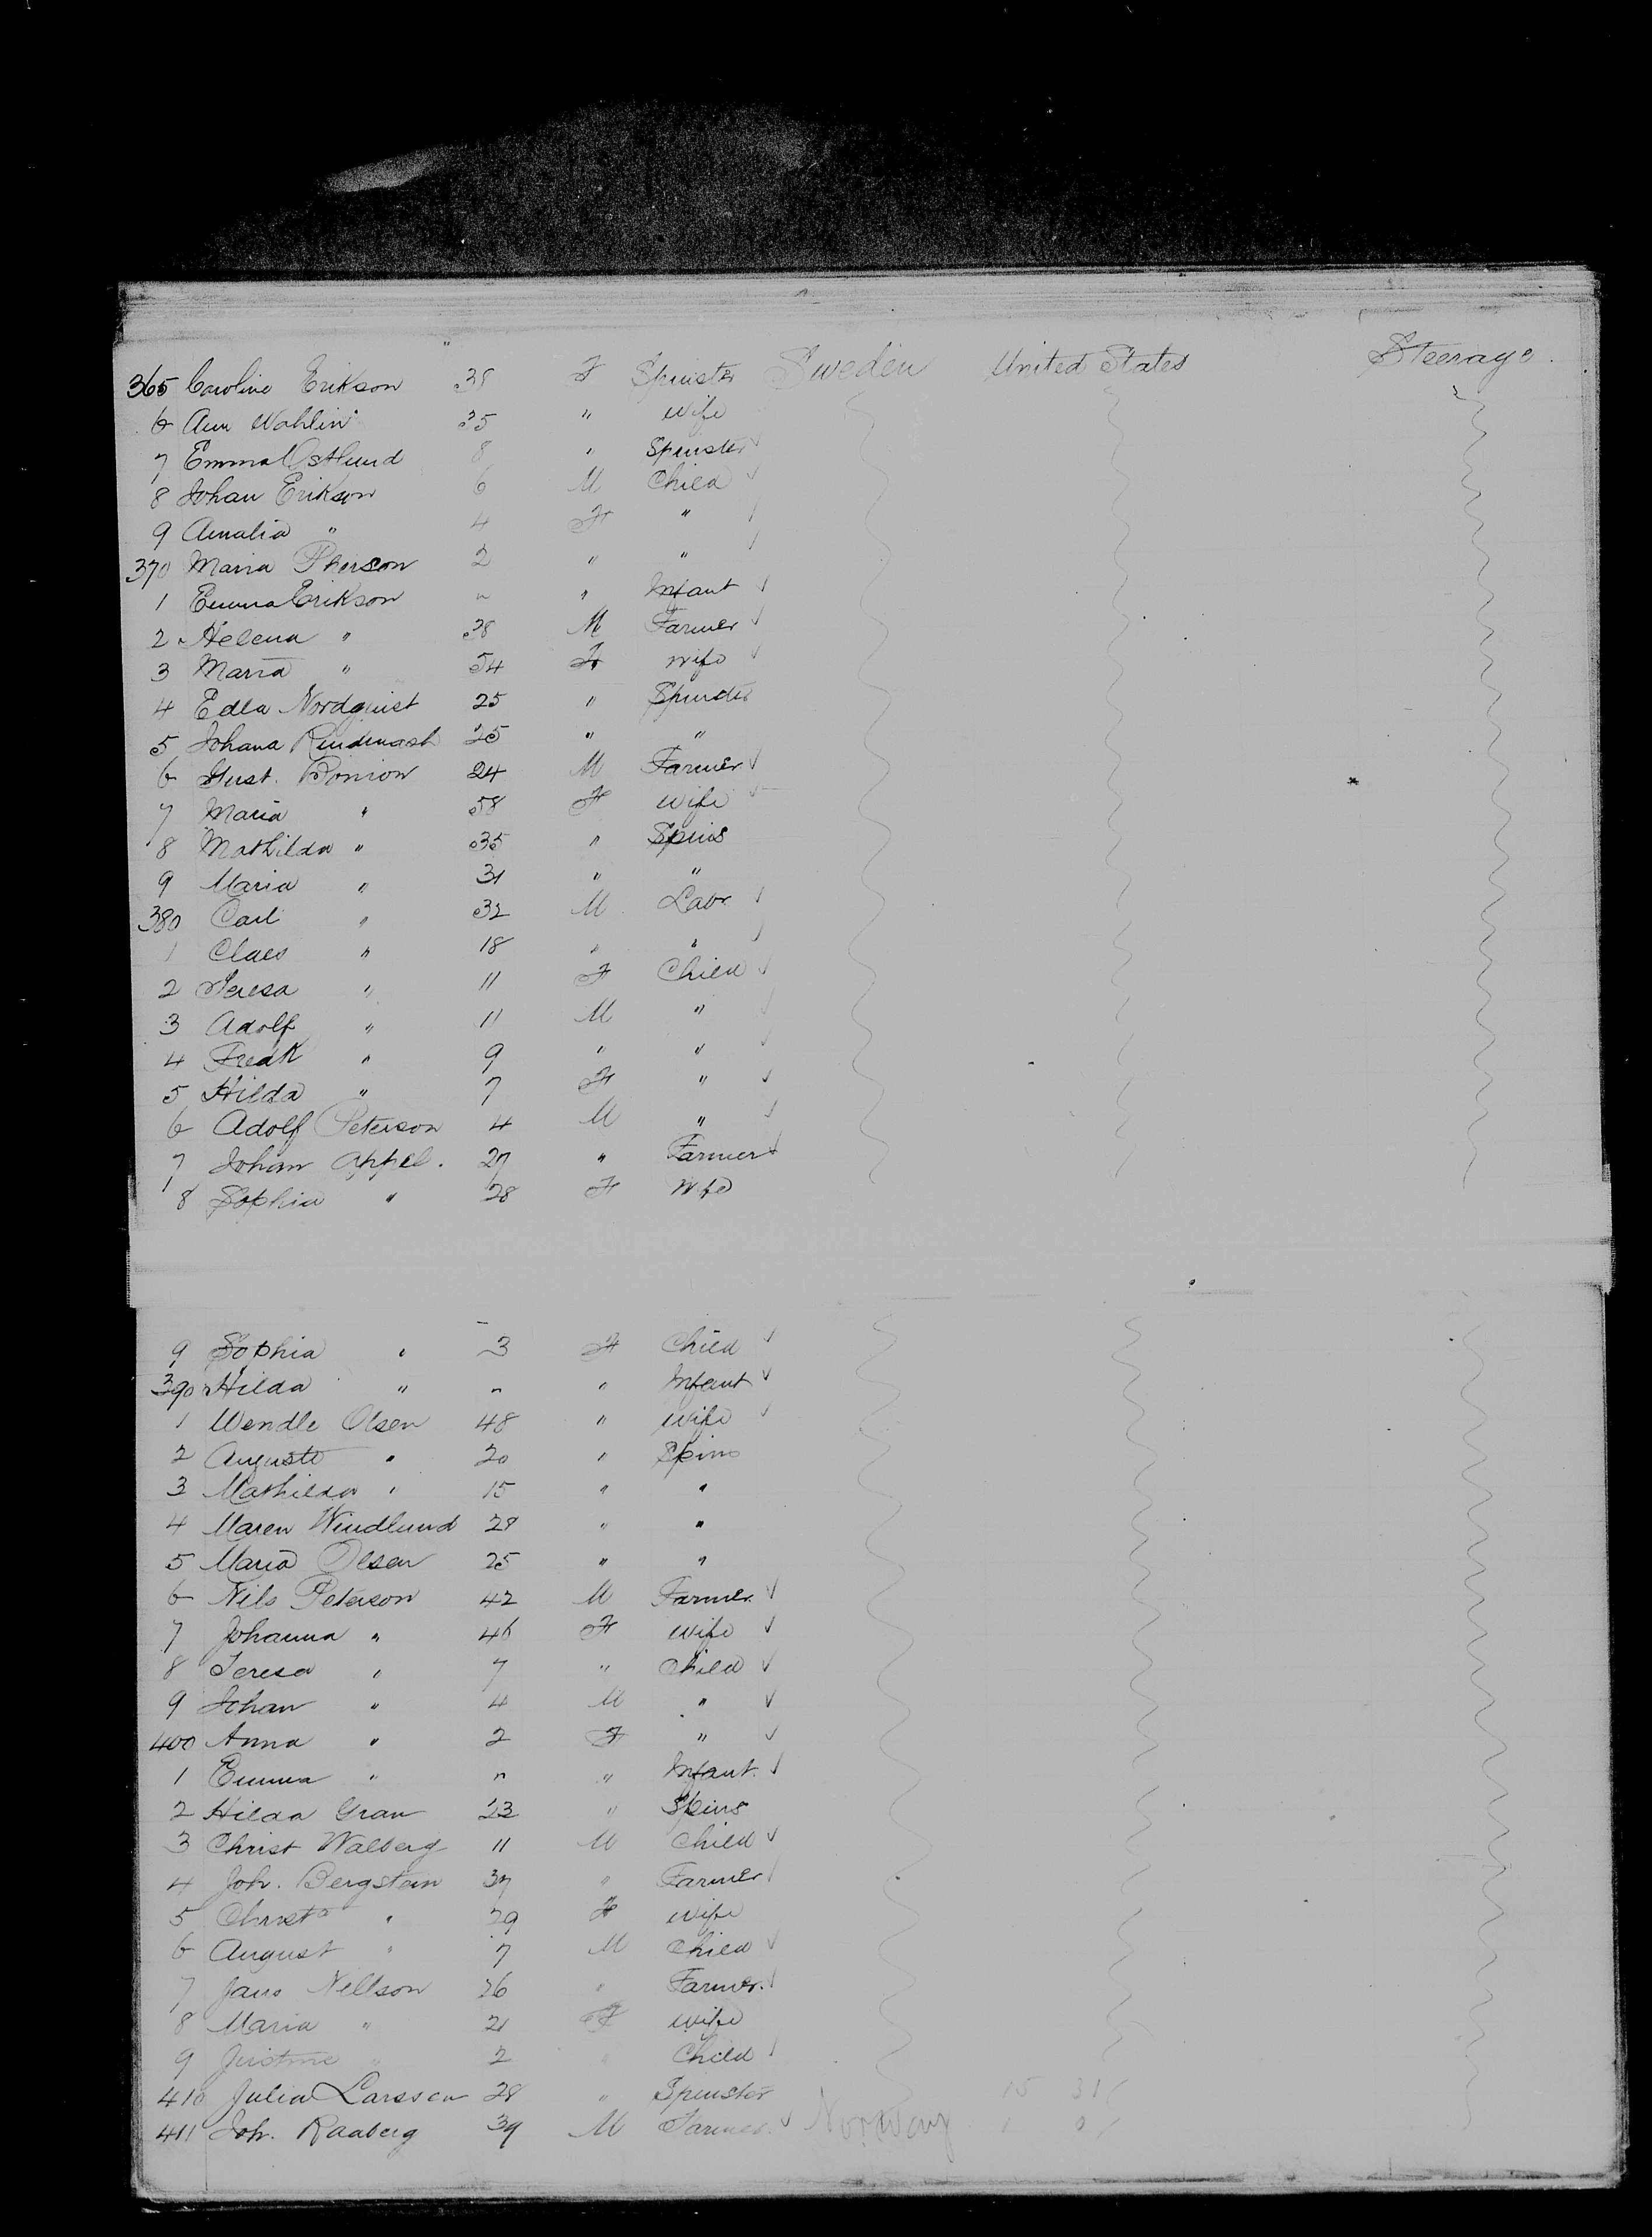 365 Caroline Erikson 38 F Spinster Sweden United States Steerage.
6 Ann Wahlin 35 " wife
7 Emma Ostlund 8 " Spinster
8 Johan Erikson 6 M Child
9 Amalia " 4 F "
370 Maria Pherson 2 " "
1 Emma Erikson " " Infant
2 Helena " 38 M Farmer
3 Maria " 54 F wife
4 Edla Nordquist 25 " Spinster
5 Johana 25 " "
6 Gust. Bonion 24 M Farmer
7 Maria " 58 F wife
8 Mathilda " 35 " Spins
9 Maria " 31 " "
380 Carl " 32 M Labr
1 Claes " 18 " "
2 Teresa " 11 F Child
3 Adolf " 11 M "
4 Fredk " 9 " "
5 Hilda " 7 F "
6 Adolf Peterson 4 M "
7 Johan Appel. 27 " Farmer
8 Sophia " 28 F Wife
9 Sophia " 3 F Child
390 Hilda " " " Infant
1 Wendle Olsen 48 " wife
2 Auguste " 20 " Spins
3 Mathilda " 15 " "
4 Maren Windlund 28 " "
5 Maria Olsen 25 " "
6 Nils Peterson 42 M Farmer
7 Johanna " 46 F wife
8 Teresa " 7 " Child
9 Johan " 4 M "
400 Anna " 2 F "
1 Emma " " " Infant
2 Hilda Gran 23 " Spins
3 Christ Walberg 11 M Child
4 Joh. Bergsten 37 " Farmer
5 Christa " 29 F wife
6 August " 7 M Child
7 Jans Nellson 26 " Farmer.
8 Maria " 21 F wife
9 Justine " 2 " Child
410 Julia Larssen 28 " Spinster
411 Joh. Raaberg 39 M Farmer Norway